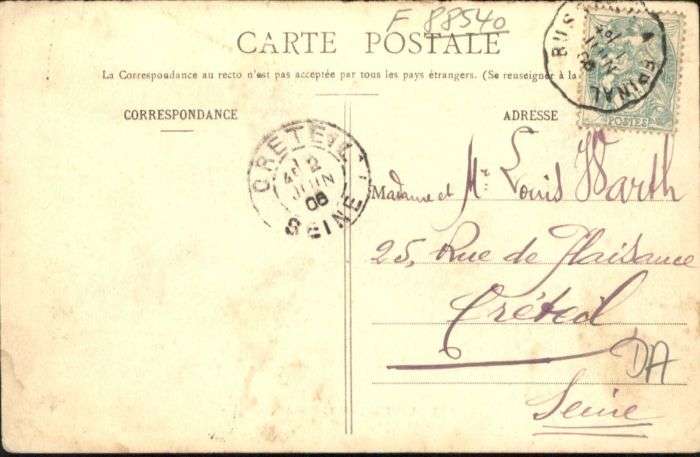 F 88540
CARTE POSTALE
La Correspondance au recto n'est pas acceptée par tous les pays étrangers. (Se renseigner à la
CORRESPONDANCE
ADRESSE
BUS A EPINAL
POSTES
CRETEIL
12
JUIN
06
SEINE
Madame et Mr Louis Warth
25, Rue de Plaisance
Créteil
DA
Seine